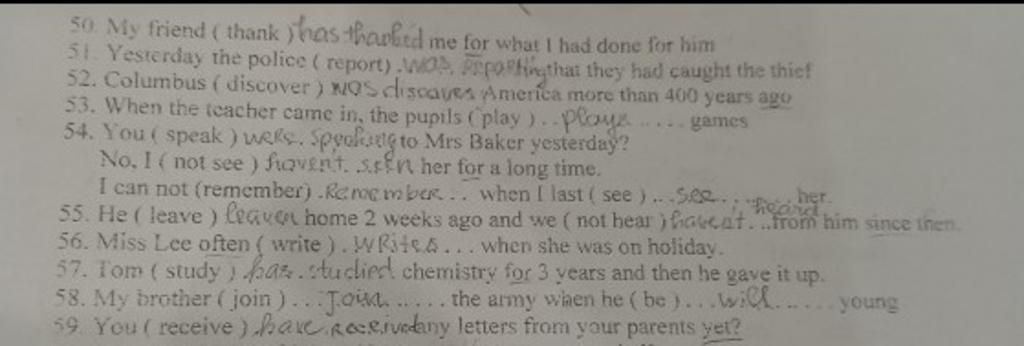 50. My friend ( thank ) has thanked me for what I had done for him
51. Yesterday the police ( report) .was reporting that they had caught the thief
52. Columbus ( discover ) was discover America more than 400 years ago
53. When the teacher came in, the pupils ( play ) . . playe ..... games
54. You ( speak ) were. speaking to Mrs Baker yesterday?
No, I ( not see ) havent. seen her for a long time.
I can not (remember) .Remember. . when I last ( see ) .. .see. . . her.
55. He ( leave ) leaven home 2 weeks ago and we ( not hear ) haveat. heard ..from him since then.
56. Miss Lee often ( write ) . writes . . . when she was on holiday.
57. Tom ( study ) has. studied chemistry for 3 years and then he gave it up.
58. My brother ( join ) . . . Join . ..... the army when he ( be ) . . . will ...... young
59. You ( receive ) have received any letters from your parents yet?